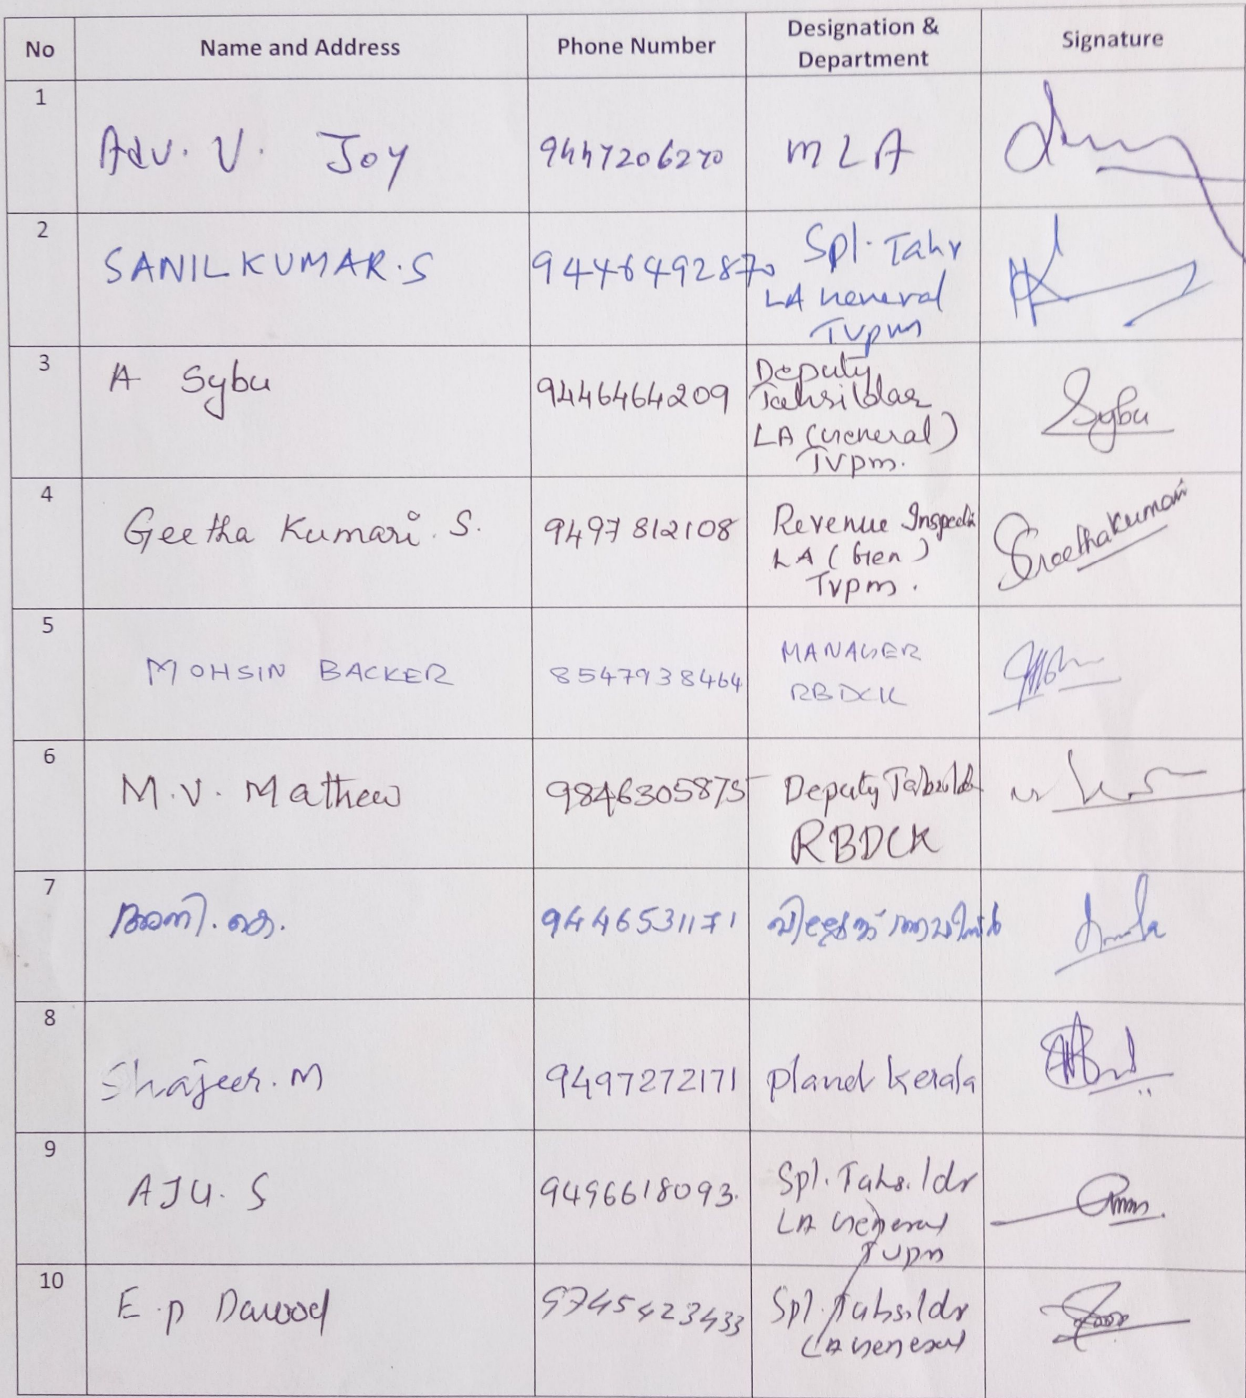 No Name and Address Phone Number Designation & Department Signature
1 Adv. V. Joy 9447206270 MLA
2 SANILKUMAR.S 9446492870 Spl. Tahr
LA General
Tvpm
3 A Sybu 9446464209 Deputy
Tahsildar
LA (General)
Tvpm.
Sybu
4 Geetha Kumari. S. 9497812108 Revenue Inspector
LA (Gen)
Tvpm.
Geethakumari
5 MOHSIN BACKER 8547938464 MANAGER
RBDCK
6 M.V. Mathew 9846305875 Deputy Tahsildr
RBDCK
7 അനി. കെ. 9446531171 വില്ലേജ് ആഫീസർ
8 Shajeer. M 9497272171 planet kerala
9 AJU. S 9496618093. Spl. Tahsildr
LA General
Tvpm
10 E.p Dawood 9745423433 Spl. Tahsildr
LA General